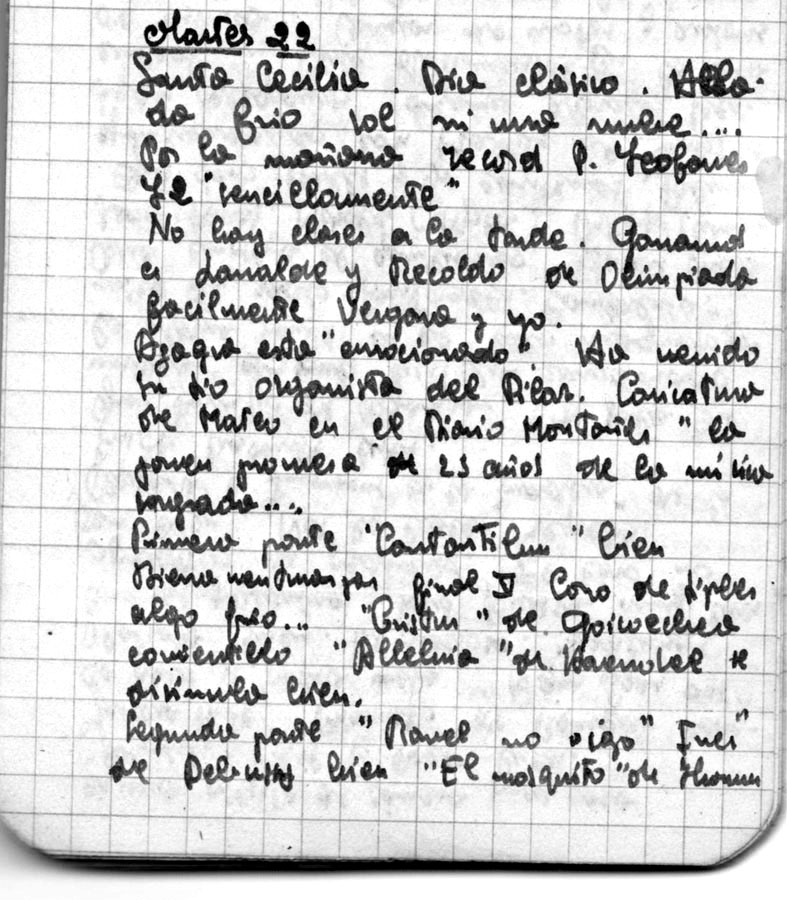 Martes 22
Santa Cecilia. Dia clásico. Hela-
da frio sol ni una nube....
Por la mañana record P. Teofanes
72 "sencillamente"
No hay clases a la tarde. Ganamos
a Lanalde y Recoldo de Olimpiada
facilmente Vergara y yo.
Azagra esta "emocionado". Ha venido
su tio organista del Pilar. Caricatura
de Mateo en el Diario Montañes "la
joven promesa de 23 años de la música
sagrada....
Primera parte "Cantantibus" bien
Bienaventuranzas final V Coro de tiples
algo frio... "Christus" de Goicoechea
contentillo "Alleluia" de Haendel se
disimula bien.
Segunda parte "Ravel no oigo"
de Debussy bien "El mosquito" de